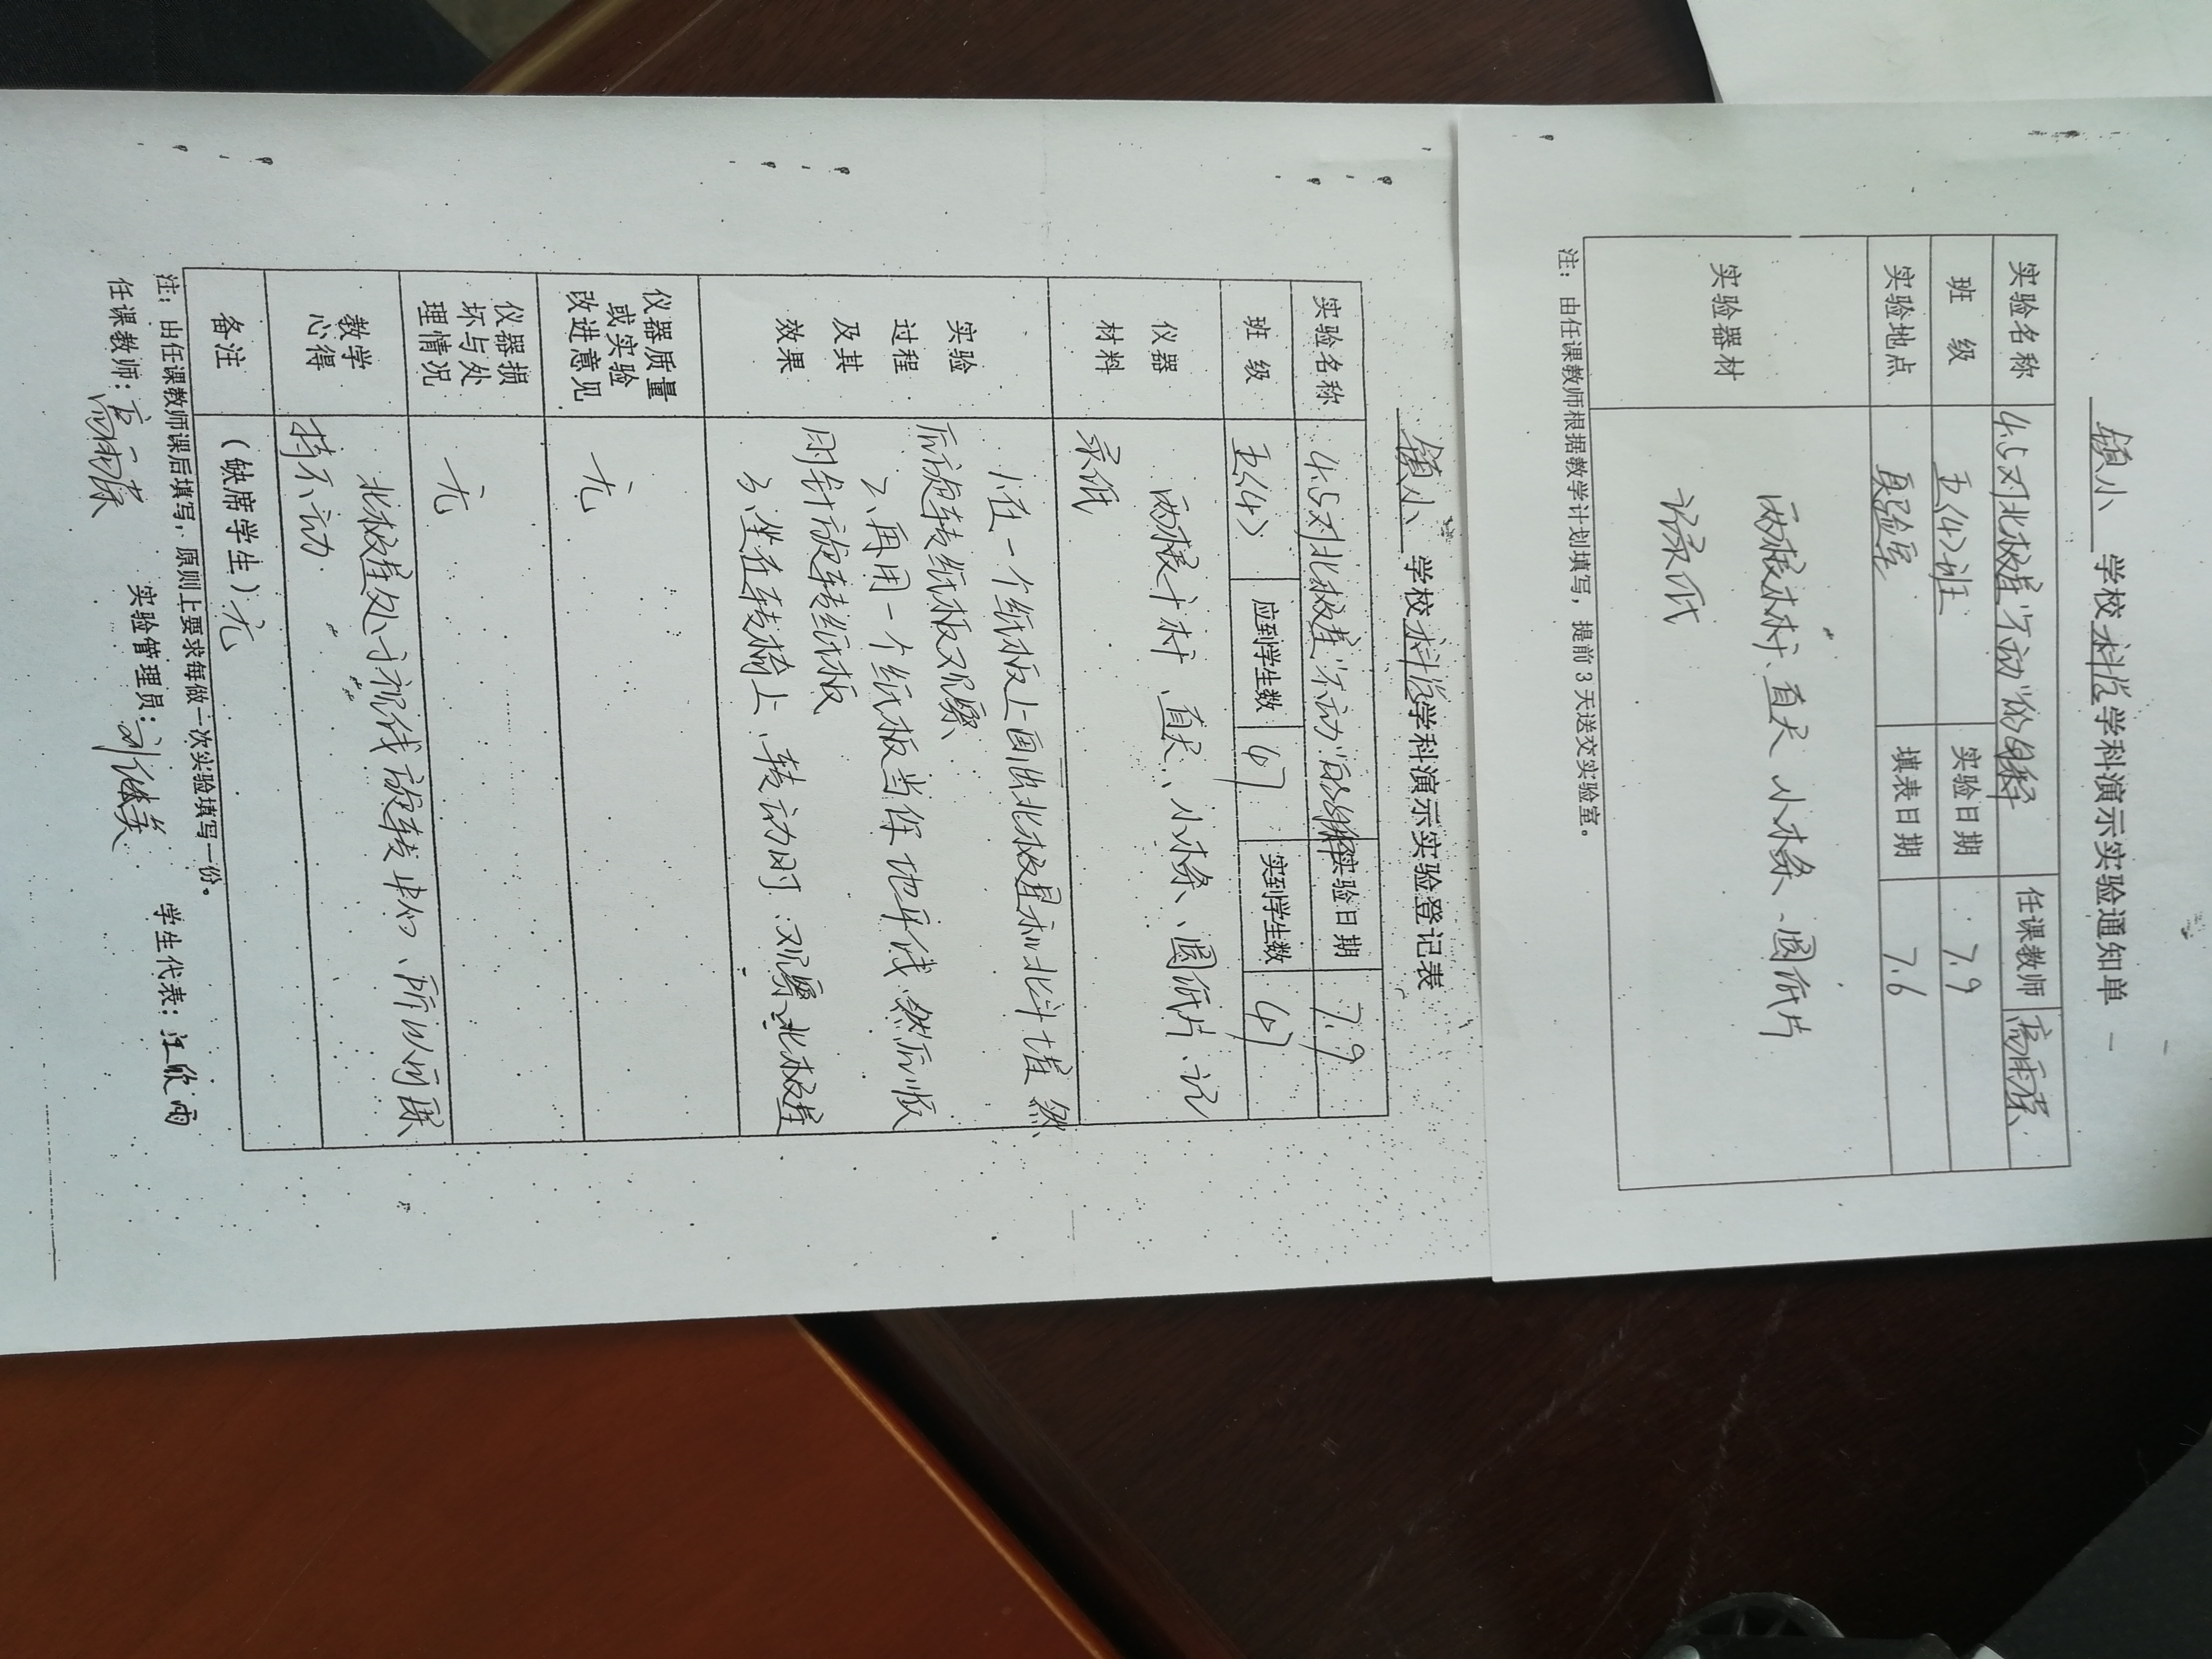 镇小 学校 科学 学科演示实验通知单
实验名称 4.5对北极星"不动"的解释 任课教师 高雨
班 级 五(4)班 实验日期 7.9
实验地点 实验室 填表日期 7.6
实验器材 两根木杆、直尺 小木条、圆纸片
记录纸
注：由任课教师根据教学计划填写，提前3天送交实验室。
镇小 学校 科学 学科演示实验登记表
实验名称 4.5对北极星"不动"的解释 实验日期 7.9
班 级 五(4) 应到学生数 47 实到学生数 47
仪器
材料
两根木杆、直尺、小木条、圆纸片、记
录纸
实验
过程
及其
效果
1.在一个纸板上画出北极星和北斗七星 然
后旋转纸板观察
2、再用一个纸板当作地平线、然后顺
时针旋转纸板
3、坐在转椅上、转动时、观察北极星
仪器质量
或实验
改进意见
无
仪器损
坏与处
理情况
无
教学
心得
北极星处于视线旋转中心、所以可保
持不动
备注 (缺席学生) 无
注：由任课教师课后填写，原则上要求每做一次实验填写一份。
任课教师：高雨 实验管理员：刘 学生代表：汪欣雨